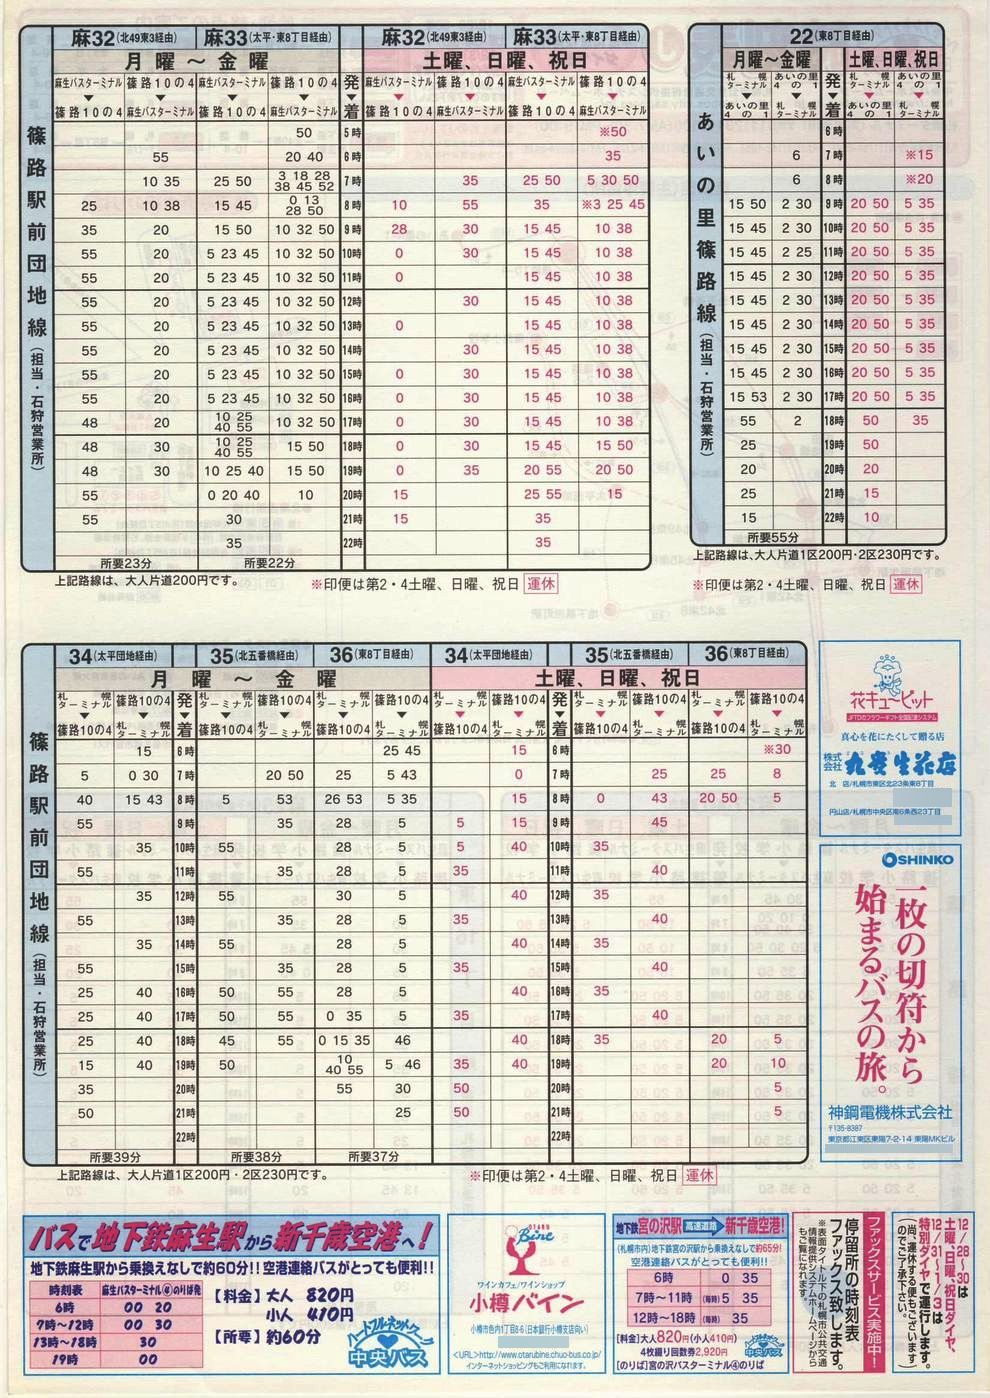 麻32(北49東3経由) 麻33(太平・東8丁目経由) 麻32(北49東3経由) 麻33(太平・東8丁目経由)
月 曜 ～ 金 曜 土曜、日曜、祝日
麻生バスターミナル 篠路10の4 麻生バスターミナル 篠路10の4 発 麻生バスターミナル 篠路10の4 麻生バスターミナル 篠路10の4
▼ ▼ ▼ ▼ ▼ ▼ ▼ ▼ ▼
篠路10の4 麻生バスターミナル 篠路10の4 麻生バスターミナル 着 篠路10の4 麻生バスターミナル 篠路10の4 麻生バスターミナル
篠路駅前団地線(担当・石狩営業所)
50 5時 ※50
55 20 40 6時 35
10 35 25 50 3 18 28 38 45 52 7時 35 25 50 5 30 50
25 10 38 15 45 0 13 28 50 8時 10 55 35 ※3 25 45
35 20 15 50 10 32 50 9時 28 30 15 45 10 38
55 20 5 23 45 10 32 50 10時 0 30 15 45 10 38
55 20 5 23 45 10 32 50 11時 0 15 45 10 38
55 20 5 23 45 10 32 50 12時 30 15 45 10 38
55 20 5 23 45 10 32 50 13時 0 15 45 10 38
55 20 5 23 45 10 32 50 14時 30 15 45 10 38
55 20 5 23 45 10 32 50 15時 0 30 15 45 10 38
55 20 5 23 45 10 32 50 16時 0 30 15 45 10 38
48 20 10 25 40 55 10 32 50 17時 0 30 15 45 10 38
48 30 10 25 40 55 15 50 18時 0 30 15 45 15 50
48 30 10 25 40 15 50 19時 0 35 20 55 20 50
55 0 20 40 10 20時 15 25 55 15
55 30 21時 15 35
35 22時 35
所要23分 所要22分
上記路線は、大人片道200円です。 ※印便は第2・4土曜、日曜、祝日 運休
22(東8丁目経由)
月曜～金曜 土曜、日曜、祝日
札幌ターミナル あいの里4の1 発 札幌ターミナル あいの里4の1
▼ ▼ ▼ ▼ ▼
あいの里4の1 札幌ターミナル 着 あいの里4の1 札幌ターミナル
あいの里篠路線(担当・石狩営業所)
6時
6 7時 ※15
6 8時 ※20
15 50 2 30 9時 20 50 5 35
15 45 2 30 10時 20 50 5 35
15 45 2 25 11時 20 50 5 35
15 45 2 30 12時 20 50 5 35
15 45 2 30 13時 20 50 5 35
15 45 2 30 14時 20 50 5 35
15 45 2 30 15時 20 50 5 35
15 45 2 30 16時 20 50 5 35
15 53 2 30 17時 20 50 5 35
55 2 18時 50 35
25 19時 50
20 20時 20
25 21時 15
15 22時 10
所要55分
上記路線は、大人片道1区200円・2区230円です。
※印便は第2・4土曜、日曜、祝日 運休
34(太平団地経由) 35(北五番橋経由) 36(東8丁目経由) 34(太平団地経由) 35(北五番橋経由) 36(東8丁目経由)
月 曜 ～ 金 曜 土曜、日曜、祝日
札幌ターミナル 篠路10の4 発 札幌ターミナル 篠路10の4 札幌ターミナル 篠路10の4 札幌ターミナル 篠路10の4 発 札幌ターミナル 篠路10の4 札幌ターミナル 篠路10の4
▼ ▼ ▼ ▼ ▼ ▼ ▼ ▼ ▼ ▼ ▼ ▼ ▼ ▼
篠路10の4 札幌ターミナル 着 篠路10の4 札幌ターミナル 篠路10の4 札幌ターミナル 篠路10の4 札幌ターミナル 着 篠路10の4 札幌ターミナル 篠路10の4 札幌ターミナル
篠路駅前団地線(担当・石狩営業所)
15 6時 25 45 15 6時 ※30
5 0 30 7時 20 50 25 5 43 0 7時 25 25 8
40 15 43 8時 5 53 26 53 5 35 15 8時 0 43 20 50 5
55 9時 35 28 5 5 15 9時 45
35 10時 55 28 5 5 40 10時 35
55 11時 35 28 5 35 11時 40
35 12時 55 30 5 40 12時 35
55 13時 35 28 5 35 13時 40
35 14時 55 28 5 40 14時 35
55 15時 35 28 5 35 15時 40
25 40 16時 50 55 28 5 40 16時 35
25 40 17時 50 55 0 35 5 35 17時 40
25 40 18時 45 55 0 15 35 46 40 18時 35 20 5
15 40 19時 50 10 40 55 5 46 35 40 19時 20 10
35 20時 55 30 50 20時 5
50 21時 25 50 21時 5
22時 22時
所要39分 所要38分 所要37分
上記路線は、大人片道1区200円・2区230円です。 ※印便は第2・4土曜、日曜、祝日 運休
花キューピット
JFTDのフラワーギフト全国配達システム
真心を花にたくして贈る店
株式会社
生花店
北 店/札幌市東区北23条東8丁目
円山店/札幌市中央区南6条西23丁目
SHINKO
一枚の切符から
始まるバスの旅。
神鋼電機株式会社
〒135-8387
東京都江東区東陽7-2-14 東陽MKビル
バスで地下鉄麻生駅から新千歳空港へ!
地下鉄麻生駅から乗換えなしで約60分!!空港連絡バスがとっても便利!!
時刻表 麻生バスターミナル④のりば発
6時 00 20
7時～12時 00 30
13時～18時 30
19時 00
【料金】大人 820円
小人 410円
【所要】約60分
ハートフルネットワーク
中央バス
OTARU
Bine
ワインカフェ/ワインショップ
小樽バイン
小樽市色内1丁目8-6(日本銀行小樽支店向い)
<URL>http://www.otarubine.chuo-bus.co.jp/
インターネットショッピングもご利用になれます。
地下鉄宮の沢駅 高速道路 新千歳空港!
(札幌市内)地下鉄宮の沢駅から乗換えなしで約65分!
空港連絡バスがとっても便利!!
6時 0 35
7時～11時 (毎時)5 35
12時～18時 (毎時) 35
[料金]大人820円(小人410円)
4枚綴り回数券2,920円
[のりば]宮の沢バスターミナル④のりば
中央バス
ファックスサービス実施中!
停留所の時刻表
ファックス致します。
※表面タイトル下の札幌市公共交通
情報提供システムのホームページから
もご覧になれます。
12/28～30は
土曜・日曜、祝日ダイヤ、
12/31～1/3は
特別ダイヤで運行します。
(尚、運休する便もございます
のでご了承下さい。)